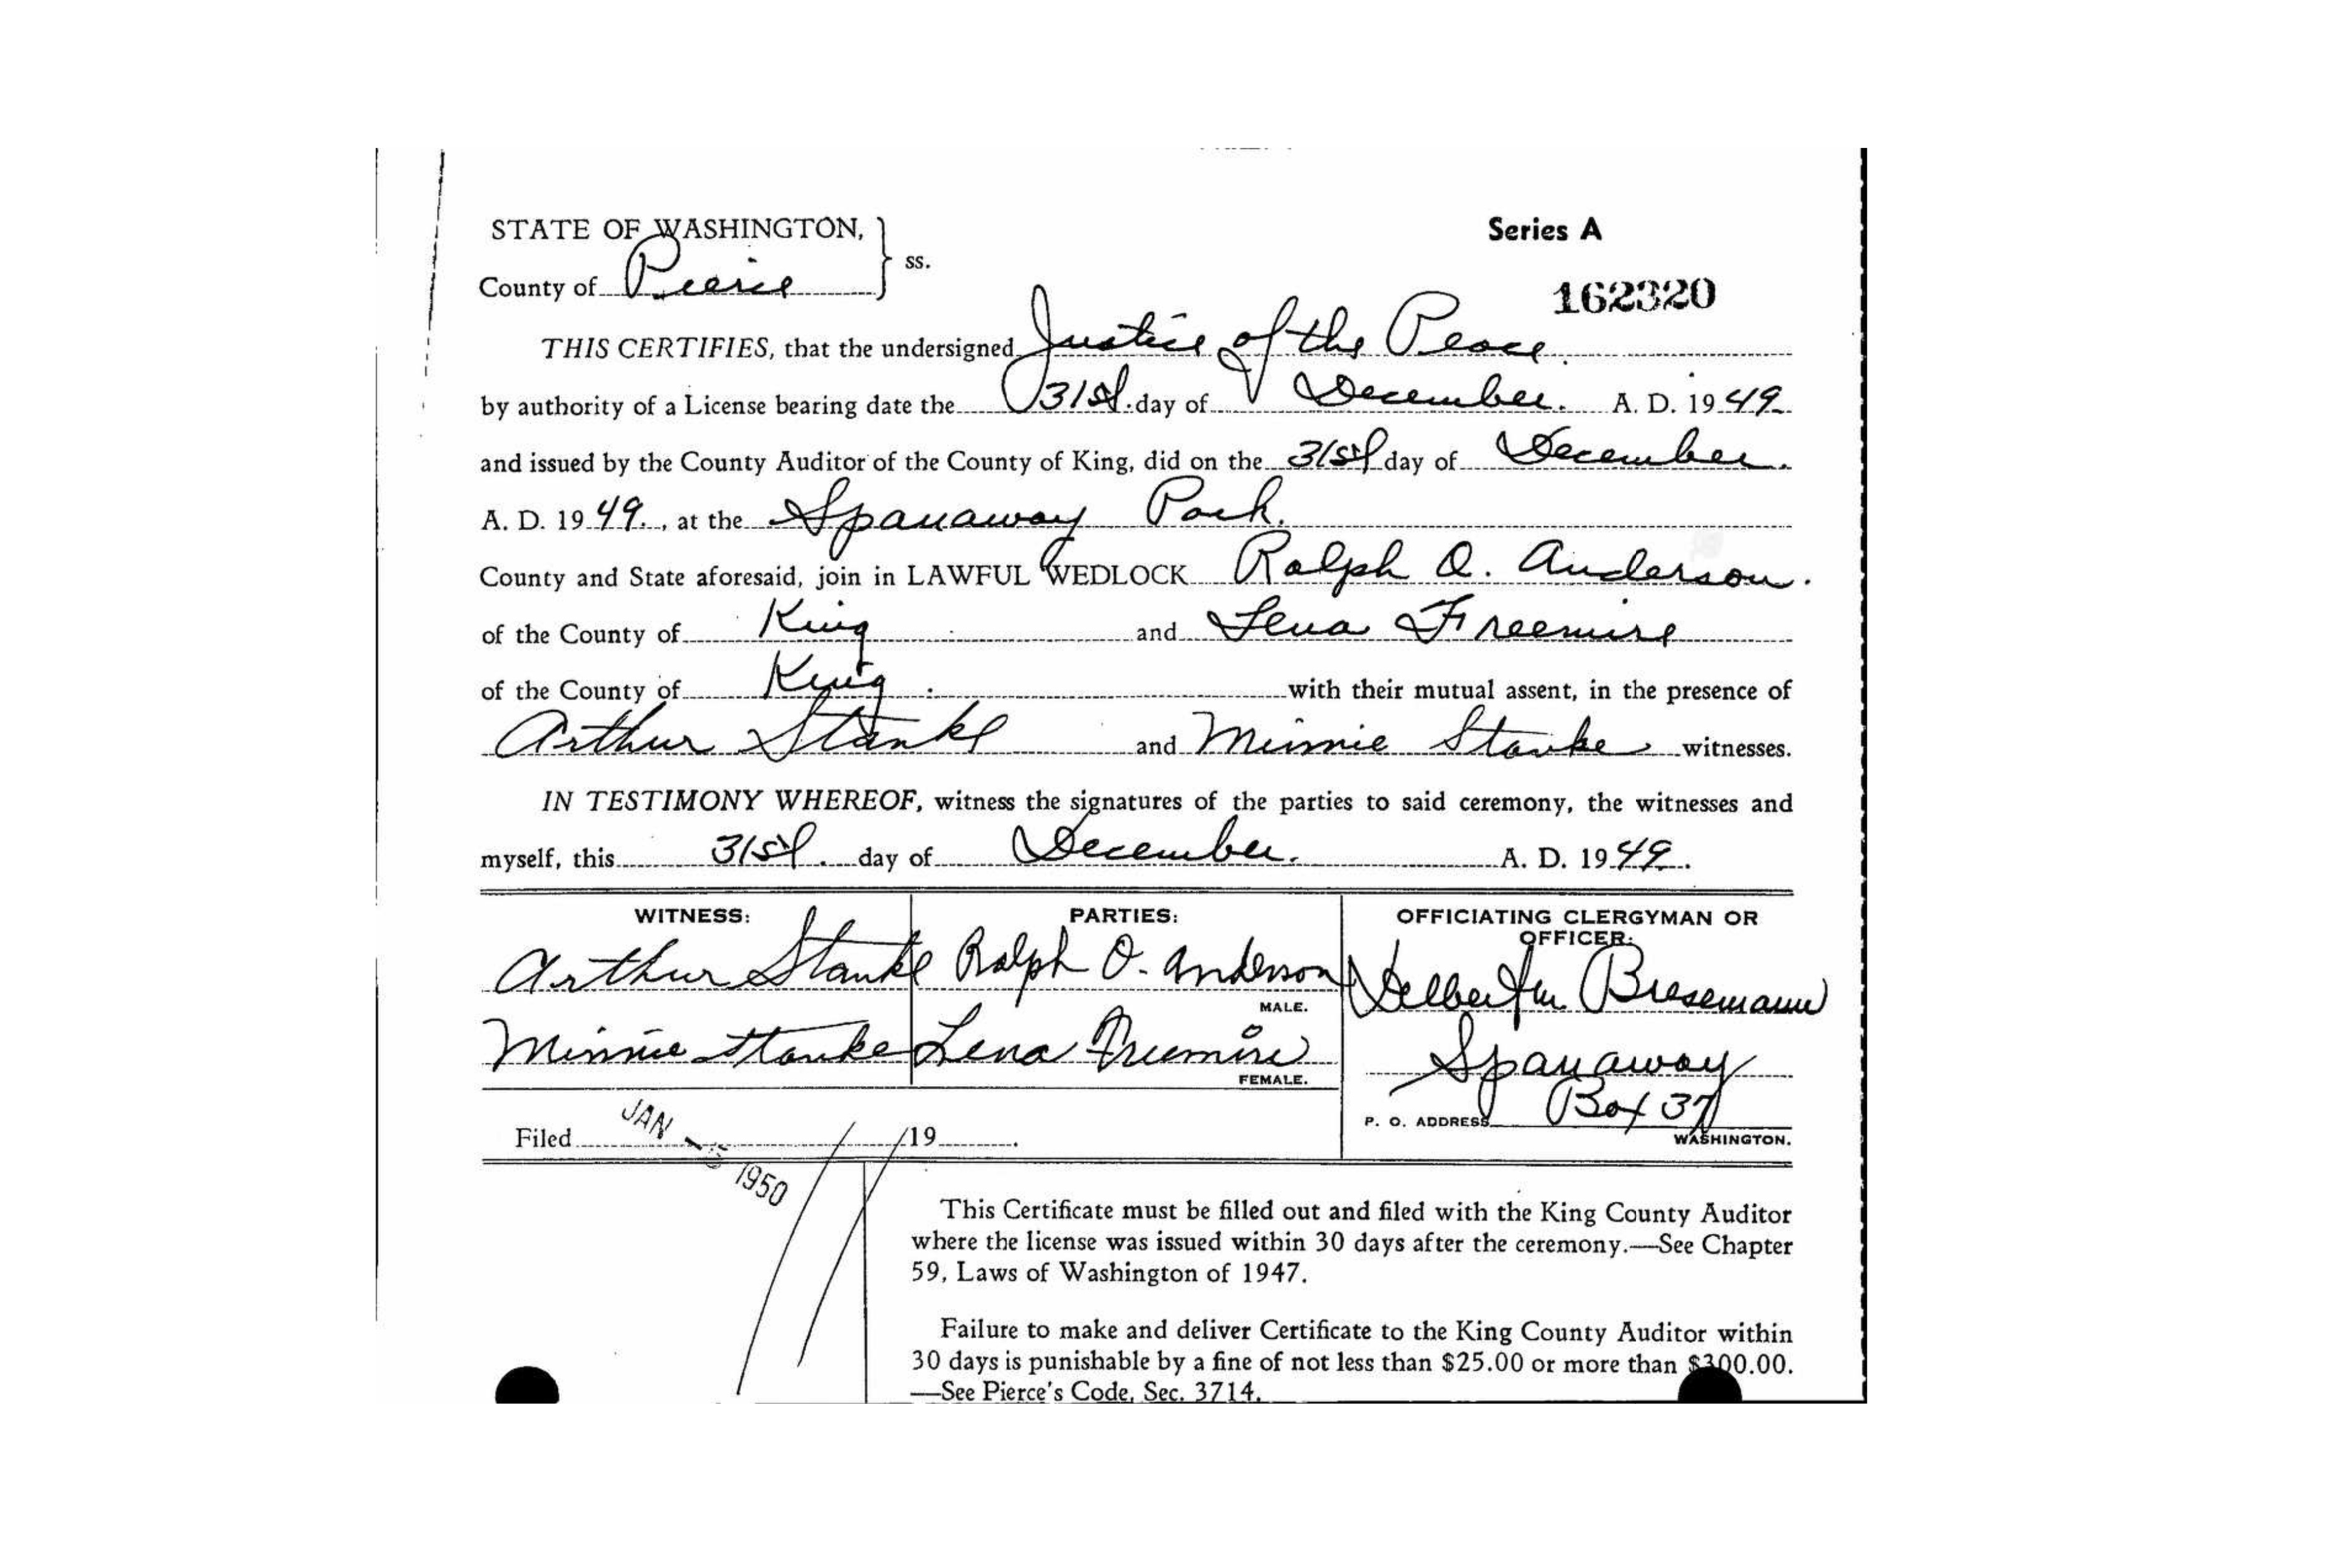 STATE OF WASHINGTON, } ss.
Series A
County of Pierce
162320
THIS CERTIFIES, that the undersigned Justice of the Peace.
by authority of a License bearing date the 31st. day of December. A. D. 19 49.
and issued by the County Auditor of the County of King, did on the 31st day of December.
A. D. 19 49., at the Spanaway Park.
County and State aforesaid, join in LAWFUL WEDLOCK Ralph O. Anderson.
of the County of King and Lena Freemire
of the County of King with their mutual assent, in the presence of
Arthur Stanke and Minnie Stanke witnesses.
IN TESTIMONY WHEREOF, witness the signatures of the parties to said ceremony, the witnesses and
myself, this 31st. day of December. A. D. 19 49.
WITNESS: PARTIES: OFFICIATING CLERGYMAN OR
OFFICER:
Arthur Stanke Ralph O. Anderson Bresemann
MALE.
Minnie Stanke Lena Freemire Spanaway
FEMALE.
Box 37
P. O. ADDRESS
WASHINGTON.
Filed JAN 1950 19
This Certificate must be filled out and filed with the King County Auditor
where the license was issued within 30 days after the ceremony.—See Chapter
59, Laws of Washington of 1947.
Failure to make and deliver Certificate to the King County Auditor within
30 days is punishable by a fine of not less than $25.00 or more than $300.00.
—See Pierce's Code, Sec. 3714.